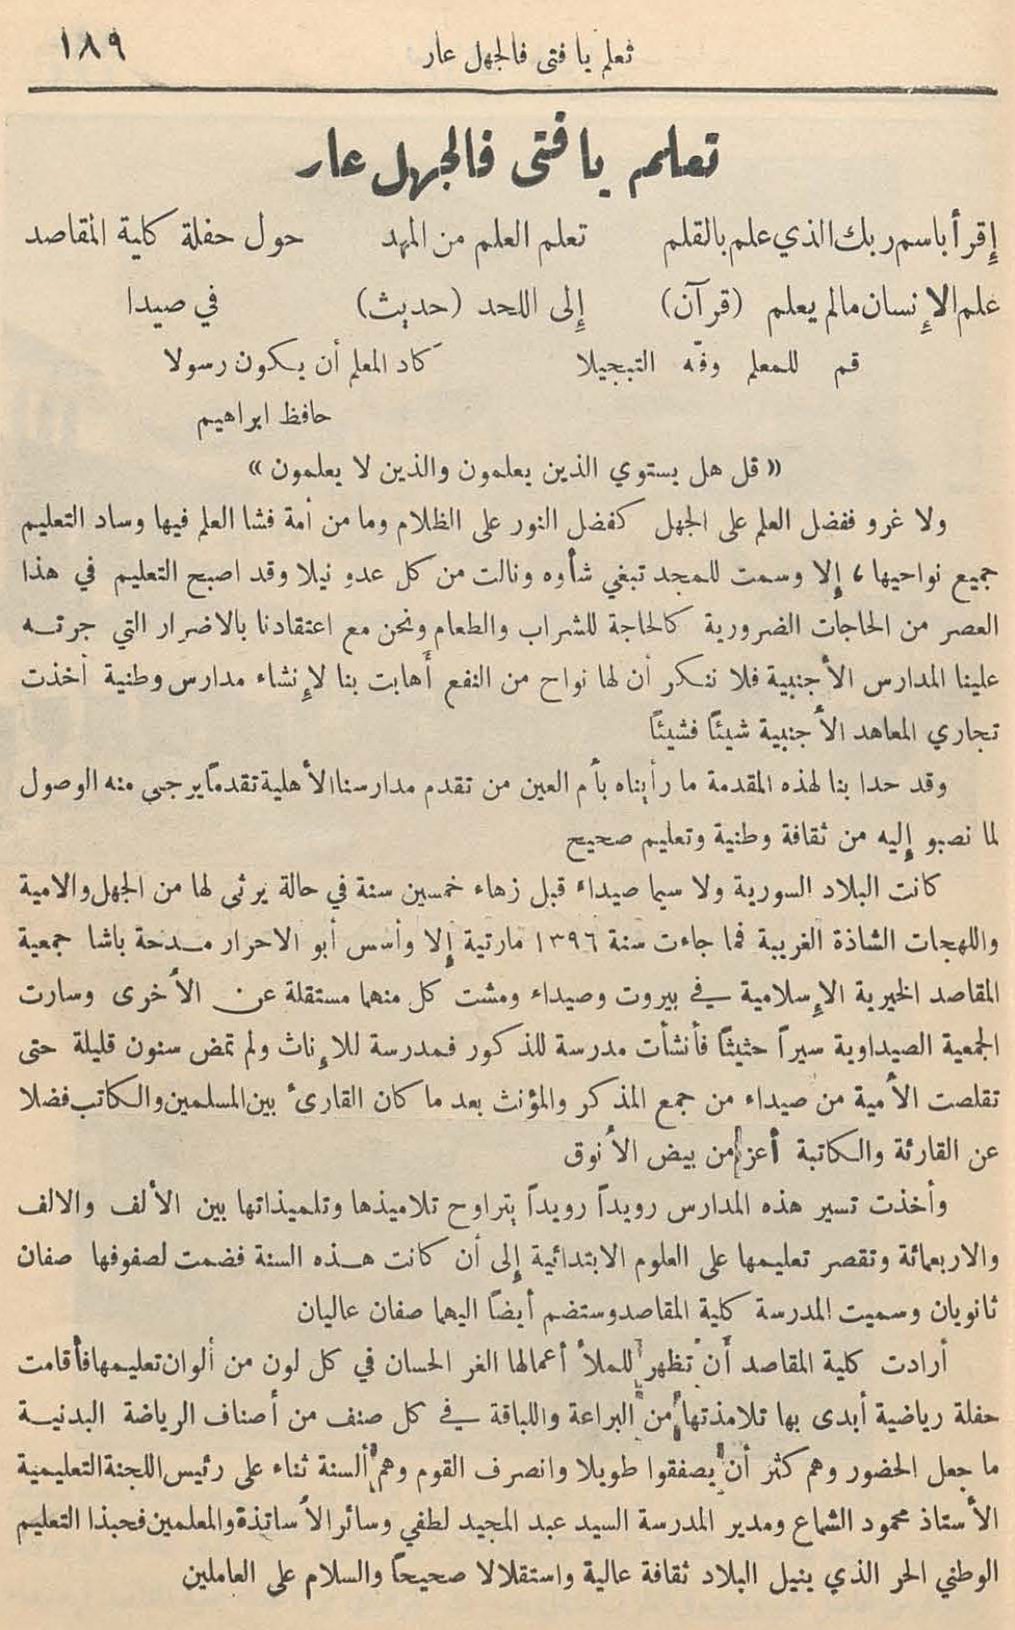 تعلم يا فتى فالجهل عار ١٨٩
تعلم يا فتى فالجهل عار
إقرأ باسم ربك الذي علم بالقلم تعلم العلم من المهد حول حفلة كلية المقاصد
علم الإنسان مالم يعلم (قرآن) إلى اللحد (حديث) في صيدا
قم للمعلم وفّه التبجيلا كاد المعلم أن يكون رسولا
حافظ ابراهيم
« قل هل يستوي الذين يعلمون والذين لا يعلمون »
ولا غرو ففضل العلم على الجهل كفضل النور على الظلام وما من أمة فشا العلم فيها وساد التعليم
جميع نواحيها ، إلا وسمت للمجد تبغي شأوه ونالت من كل عدو نيلا وقد اصبح التعليم في هذا
العصر من الحاجات الضرورية كالحاجة للشراب والطعام ونحن مع اعتقادنا بالاضرار التي جرتـه
علينا المدارس الأجنبية فلا ننكر أن لها نواح من النفع أهابت بنا لإنشاء مدارس وطنية أخذت
تجاري المعاهد الأجنبية شيئاً فشيئاً
وقد حدا بنا لهذه المقدمة ما رأيناه بأم العين من تقدم مدارسنا الأهلية تقدماً يرجى منه الوصول
لما نصبو إليه من ثقافة وطنية وتعليم صحيح
كانت البلاد السورية ولا سيما صيداء قبل زهاء خمسين سنة في حالة يرثى لها من الجهل والامية
واللهجات الشاذة الغريبة فما جاءت سنة ١٣٩٦ مارتية إلا وأسس أبو الاحرار مدحة باشا جمعية
المقاصد الخيرية الإسلامية في بيروت وصيداء ومشت كل منهما مستقلة عن الأخرى وسارت
الجمعية الصيداوية سيراً حثيثاً فأنشأت مدرسة للذكور فمدرسة للإناث ولم تمض سنون قليلة حتى
تقلصت الأمية من صيداء من جمع المذكر والمؤنث بعد ما كان القارئ بين المسلمين والكاتب فضلا
عن القارئة والكاتبة أعز من بيض الأنوق
وأخذت تسير هذه المدارس رويداً رويداً يتراوح تلاميذها وتلميذاتها بين الألف والالف
والاربعمائة وتقصر تعليمها على العلوم الابتدائية إلى أن كانت هـذه السنة فضمت لصفوفها صفان
ثانويان وسميت المدرسة كلية المقاصد وستضم أيضاً اليهما صفان عاليان
أرادت كلية المقاصد أن تظهر للملأ أعمالها الغر الحسان في كل لون من ألوان تعليمها فأقامت
حفلة رياضية أبدى بها تلامذتها من البراعة واللباقة في كل صنف من أصناف الرياضة البدنيـة
ما جعل الحضور وهم كثر أن يصفقوا طويلا وانصرف القوم وهم ألسنة ثناء على رئيس اللجنة التعليمية
الأستاذ محمود الشماع ومدير المدرسة السيد عبد المجيد لطفي وسائر الأساتذة والمعلمين فحبذا التعليم
الوطني الحر الذي ينيل البلاد ثقافة عالية واستقلالا صحيحاً والسلام على العاملين